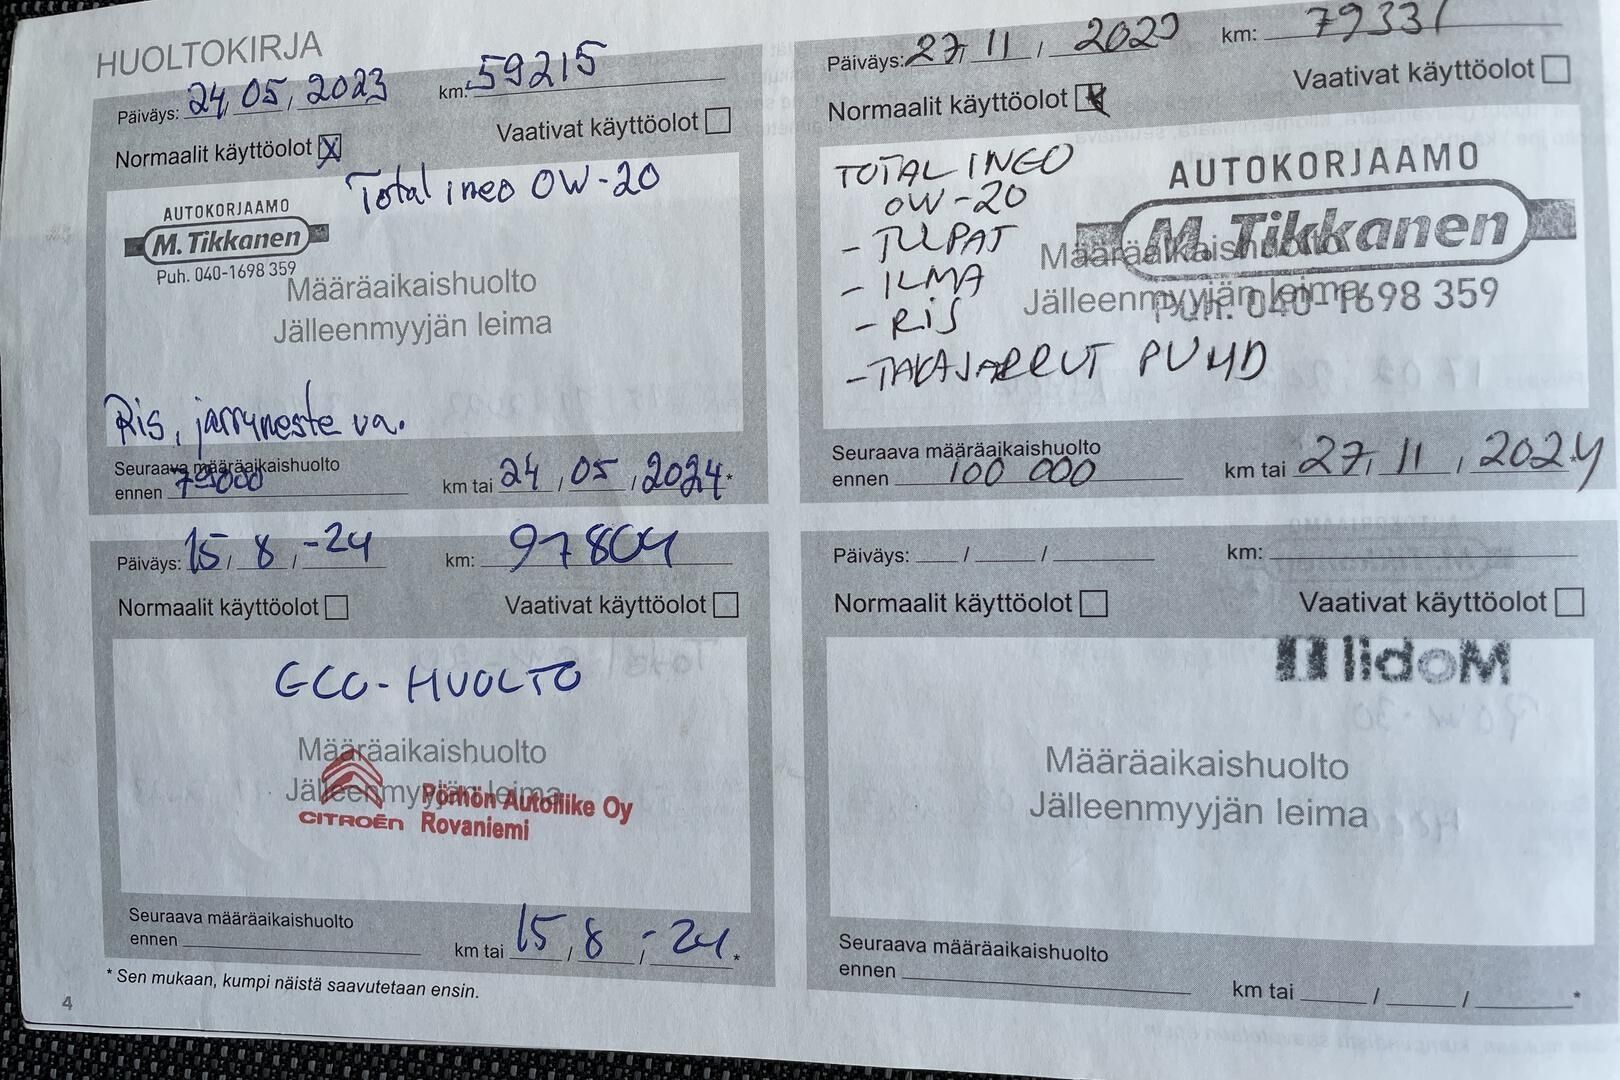 HUOLTOKIRJA
Päiväys: 24, 05, 2023 km: 59215
Normaalit käyttöolot ☒ Vaativat käyttöolot ☐
Total ineo 0W-20
AUTOKORJAAMO
M. Tikkanen
Puh. 040-1698 359
Määräaikaishuolto
Jälleenmyyjän leima
Ris, jarruneste va.
Seuraava määräaikaishuolto
ennen 79000 km tai 24, 05, 2024*
Päiväys: 27, 11, 2023 km: 79331
Normaalit käyttöolot ☒ Vaativat käyttöolot ☐
TOTAL INEO
0W-20
- TULPAT
- ILMA
- RIS
- TAKAJARRUT PUHD
AUTOKORJAAMO
M. Tikkanen
Puh. 040-1698 359
Määräaikaishuolto
Jälleenmyyjän leima
Seuraava määräaikaishuolto
ennen 100 000 km tai 27, 11, 2024
Päiväys: 15, 8, -24 km: 97804
Normaalit käyttöolot ☐ Vaativat käyttöolot ☐
ECO-HUOLTO
Määräaikaishuolto
Jälleenmyyjän leima
CITROËN Pörhön Autoliike Oy
Rovaniemi
Seuraava määräaikaishuolto
ennen km tai 15, 8, -24.*
* Sen mukaan, kumpi näistä saavutetaan ensin.
4
Päiväys: / / km:
Normaalit käyttöolot ☐ Vaativat käyttöolot ☐
Mobil
Määräaikaishuolto
Jälleenmyyjän leima
Seuraava määräaikaishuolto
ennen km tai / / *